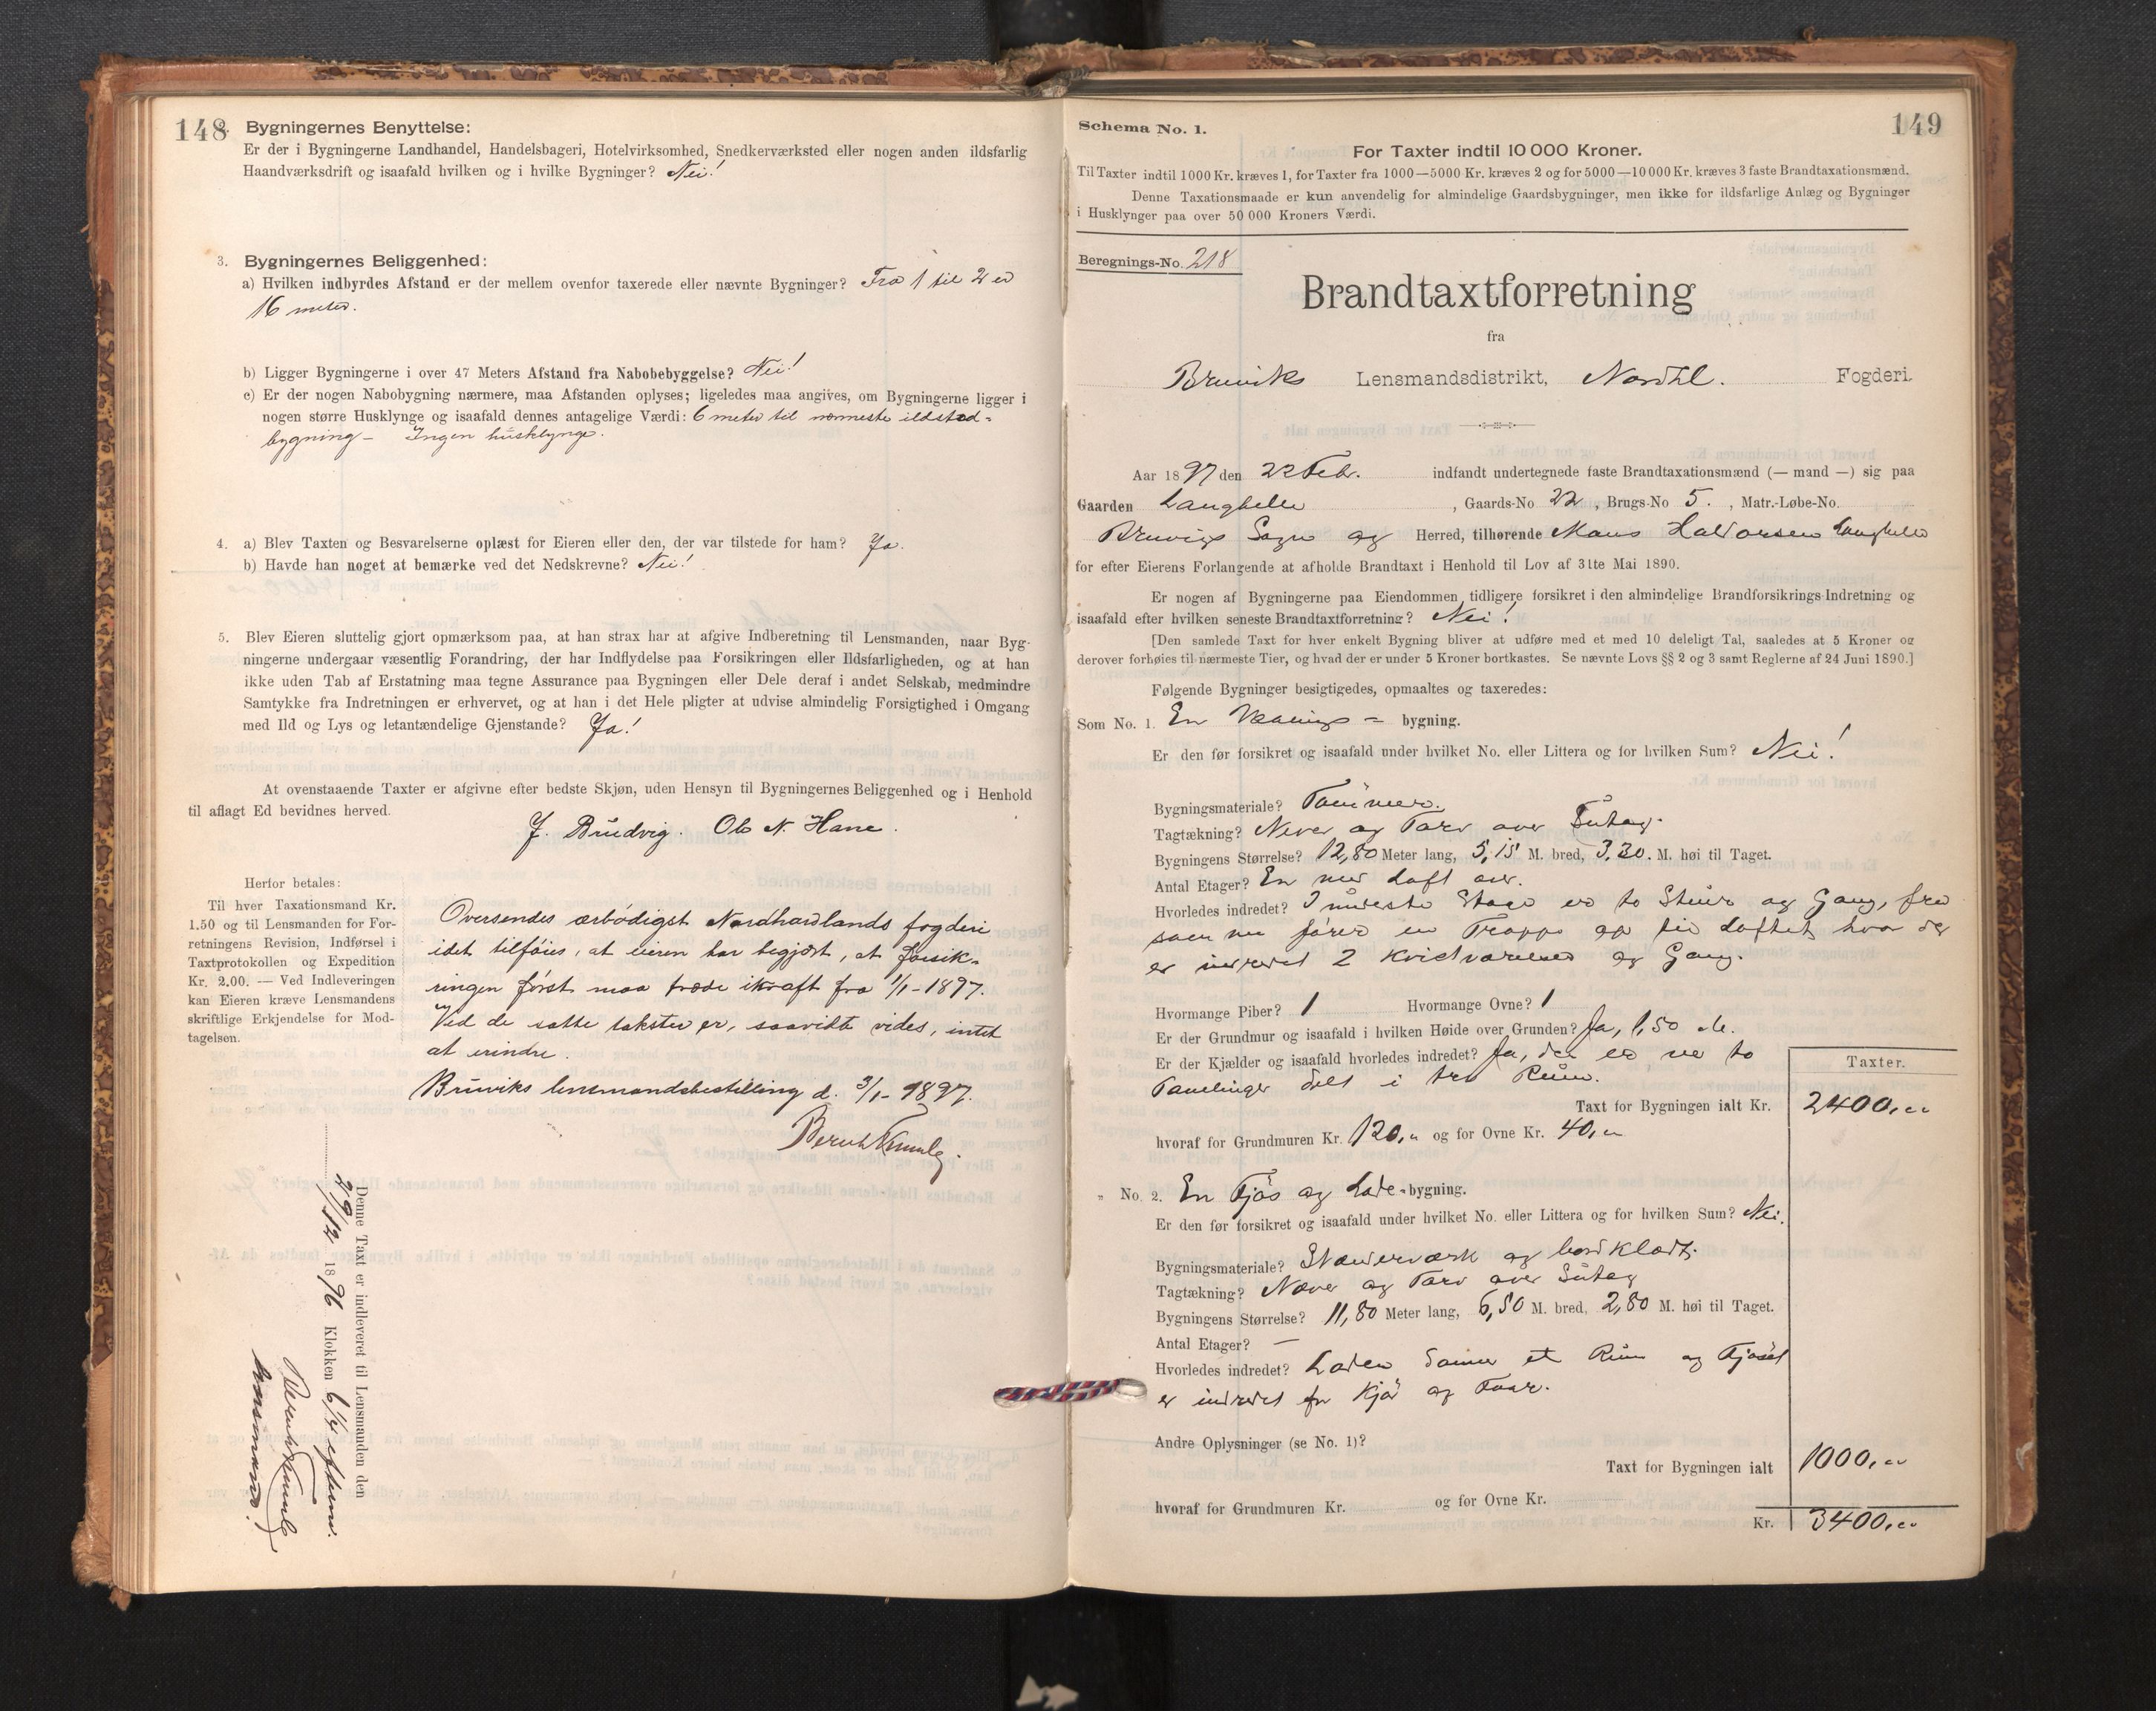 148
Bygningernes Benyttelse:
Er der i Bygningerne Landhandel, Handelsbageri, Hotelvirksomhed, Snedkerværksted eller nogen anden ildsfarlig
Haandværksdrift og isaafald hvilken og i hvilke Bygninger? Nei!
3. Bygningernes Beliggenhed:
a) Hvilken indbyrdes Afstand er der mellem ovenfor taxerede eller nævnte Bygninger? Fra 1 til 2 er
16 meter.
b) Ligger Bygningerne i over 47 Meters Afstand fra Nabobebyggelse? Nei!
c) Er der nogen Nabobygning nærmere, maa Afstanden oplyses; ligeledes maa angives, om Bygningerne ligger i
nogen større Husklynge og isaafald dennes antagelige Værdi: 6 meter til nærmeste ildsted-
bygning – Ingen husklynge.
4. a) Blev Taxten og Besvarelserne oplæst for Eieren eller den, der var tilstede for ham? Ja.
b) Havde han noget at bemærke ved det Nedskrevne? Nei!
5. Blev Eieren sluttelig gjort opmærksom paa, at han strax har at afgive Indberetning til Lensmanden, naar Byg-
ningerne undergaar væsentlig Forandring, der har Indflydelse paa Forsikringen eller Ildsfarligheden, og at han
ikke uden Tab af Erstatning maa tegne Assurance paa Bygningen eller Dele deraf i andet Selskab, medmindre
Samtykke fra Indretningen er erhvervet, og at han i det Hele pligter at udvise almindelig Forsigtighed i Omgang
med Ild og Lys og letantændelige Gjenstande? Ja!
At ovenstaaende Taxter er afgivne efter bedste Skjøn, uden Hensyn til Bygningernes Beliggenhed og i Henhold
til aflagt Ed bevidnes herved.
J. Brudvig. Ole N. Hane.
Herfor betales:
Til hver Taxationsmand Kr.
1.50 og til Lensmanden for For-
retningens Revision, Indførsel i
Taxtprotokollen og Expedition
Kr. 2.00. — Ved Indleveringen
kan Eieren kræve Lensmandens
skriftlige Erkjendelse for Mod-
tagelsen.
Oversendes ærbødigst Nordhordlands fogderi
idet tilføies, at eieren har begjært, at forsik-
ringen først maa træde ikraft fra 1/1-1897.
Ved de satte takster er, saavidt vides, intet
at erindre.
Bruviks lensmandsbestilling d. 3/1-1897.
Denne Taxt er indleveret til Lensmanden den
29/12 1896 Klokken 6 1/4 efterm.
lensmand.
149
Schema No. 1.
For Taxter indtil 10 000 Kroner.
Til Taxter indtil 1000 Kr. kræves 1, for Taxter fra 1000—5000 Kr. kræves 2 og for 5000—10000 Kr. kræves 3 faste Brandtaxationsmænd.
Denne Taxationsmaade er kun anvendelig for almindelige Gaardsbygninger, men ikke for ildsfarlige Anlæg og Bygninger
i Husklynger paa over 50 000 Kroners Værdi.
Beregnings-No. 218
Brandtaxtforretning
fra
Bruviks Lensmandsdistrikt, Nordhl. Fogderi.
Aar 1897 den 22 Feb. indfandt undertegnede faste Brandtaxationsmænd (— mand —) sig paa
Gaarden Langhelle, Gaards-No 22, Brugs-No 5., Matr.-Løbe-No.
Bruvigs Sogn og Herred, tilhørende Mons Haldorsen Langhelle
for efter Eierens Forlangende at afholde Brandtaxt i Henhold til Lov af 31te Mai 1890.
Er nogen af Bygningerne paa Eiendommen tidligere forsikret i den almindelige Brandforsikrings-Indretning og
isaafald efter hvilken seneste Brandtaxtforretning? Nei!
[Den samlede Taxt for hver enkelt Bygning bliver at udføre med et med 10 deleligt Tal, saaledes at 5 Kroner og
derover forhøies til nærmeste Tier, og hvad der er under 5 Kroner bortkastes. Se nævnte Lovs §§ 2 og 3 samt Reglerne af 24 Juni 1890.]
Følgende Bygninger besigtigedes, opmaaltes og taxeredes:
Som No. 1. En Vaanings- bygning.
Er den før forsikret og isaafald under hvilket No. eller Littera og for hvilken Sum? Nei!
Bygningsmateriale? Tømmer.
Tagtækning? Never og Torv over Sutag.
Bygningens Størrelse? 12,80 Meter lang, 5,15 M. bred, 3,30. M. høi til Taget.
Antal Etager? En med Loft over.
Hvorledes indredet? I nderste Etage er to Stuer og Gang, fra
som nu fører en Trappe op til Loftet, hvor der
er indredet 2 Kvistværelser og Gang.
Hvormange Piber? 1 Hvormange Ovne? 1
Er der Grundmur og isaafald i hvilken Høide over Grunden? Ja, 1,50 M.
Er der Kjælder og isaafald hvorledes indredet? Ja, der er ved to
Panelinger delt i tre Rum.
Taxter.
Taxt for Bygningen ialt Kr. 2400,00
hvoraf for Grundmuren Kr. 120,00 og for Ovne Kr. 40,00
„ No. 2. En Fjøs og Lade-bygning.
Er den før forsikret og isaafald under hvilket No. eller Littera og for hvilken Sum? Nei.
Bygningsmateriale? Stænderværk og bordklædt.
Tagtækning? Næver og Torv over Sutag
Bygningens Størrelse? 11,80 Meter lang, 6,50 M. bred, 2,80 M. høi til Taget.
Antal Etager? —
Hvorledes indredet? Laden danner et Rum og Fjøset
er indredet for Kjør og Faar.
Andre Oplysninger (se No. 1)?
Taxt for Bygningen ialt 1000,00
hvoraf for Grundmuren Kr. og for Ovne Kr.
Kr. 3400,00